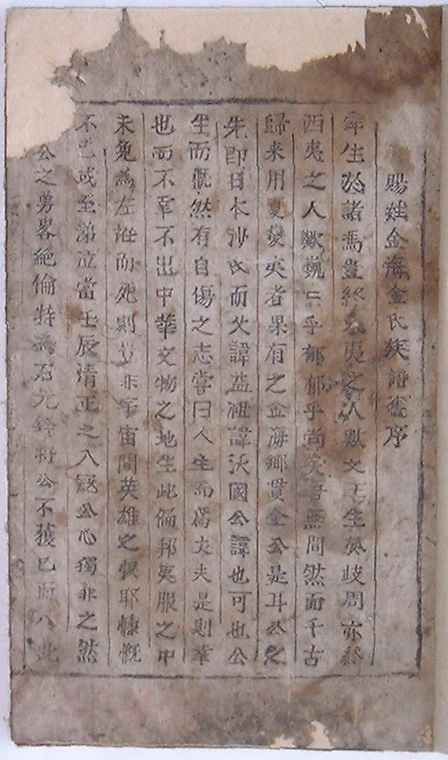 賜姓金海金氏族譜舊序
舜生於諸馮豈終東夷之人歟文王生於岐周亦終
西夷之人歟巍巍乎郁郁乎尚矣吾無間然而千古
歸来用夏變夷者果有之金海鄉貫金公是耳公之
先即日本沙氏而父諱益祖諱沃國公諱也可也公
生而慨然有自傷之志嘗曰人生而爲丈夫是則幸
也而不幸不出中華文物之地生此偏邦夷服之中
未免為左袵而死則豈非宇宙間英雄之恨耶慷慨
不已或至涕泣當壬辰清正之入寇公心獨非之然
公之勇畧絶倫特為右先鋒將公不獲已而八此